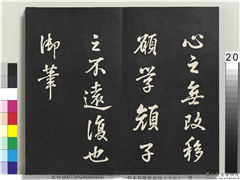 心之無改移
願學顏子
之不遠復也
御筆
20